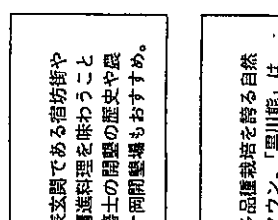 玄関である宿坊街や
進料理を味わうこと
士の開墾の歴史や農
岡開墾場もおすすめ。
品種栽培を誇る自然
ウン。「黒川能」は